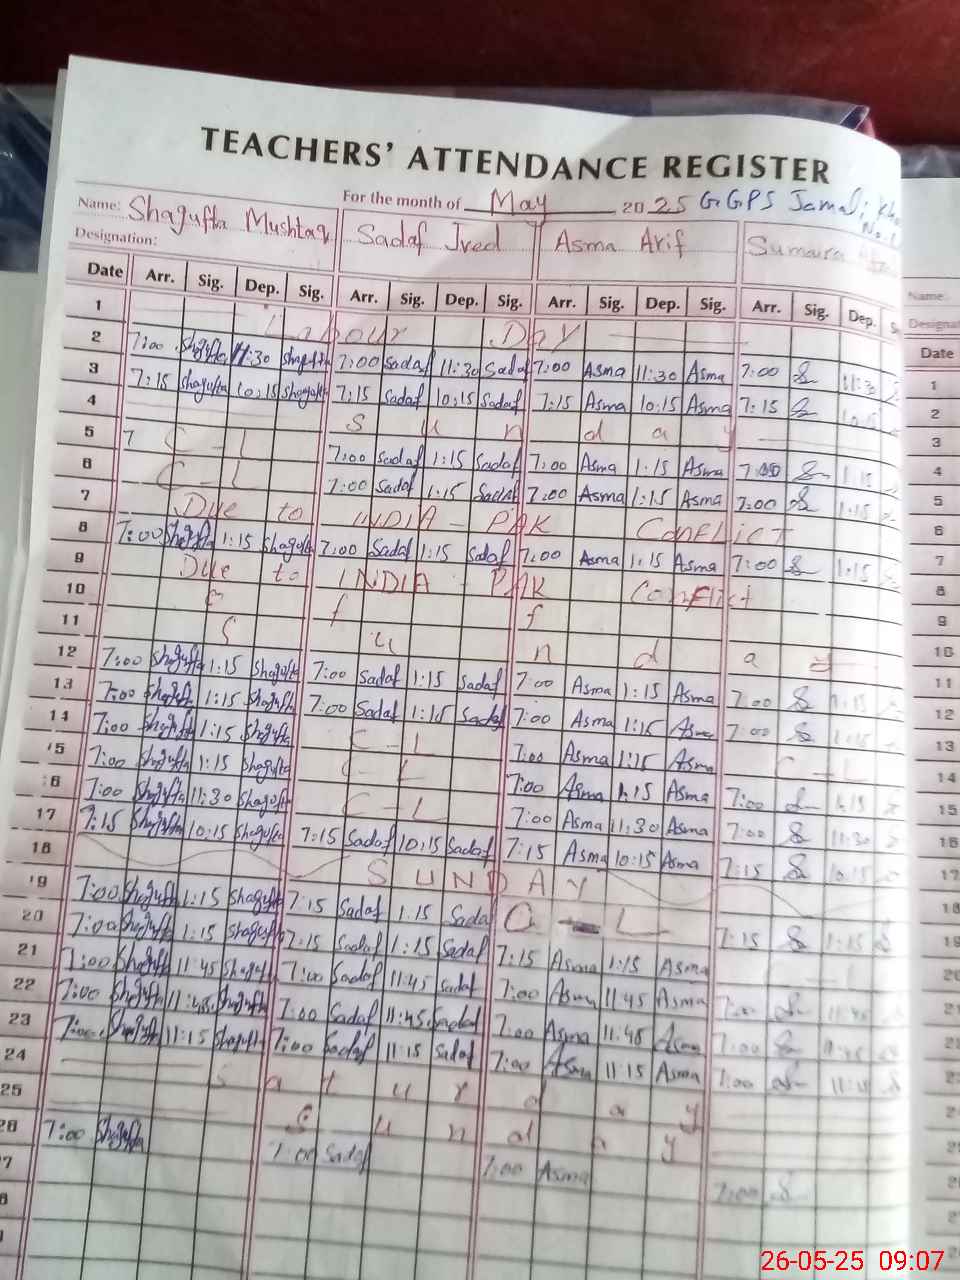 TEACHERS' ATTENDANCE REGISTER
For the month of May 2025 GGPS Jamal
Name: Shagufta Mushtaq Sadaf Jved Asma Arif Sumaira
Designation:
Date Arr. Sig. Dep. Sig. Arr. Sig. Dep. Sig. Arr. Sig. Dep. Sig. Arr. Sig. Dep.
1 Labour Day
2 7:00 Shagufta 11:30 Shagufta 7:00 Sadaf 11:30 Sadaf 7:00 Asma 11:30 Asma 7:00 11:30
3 7:15 Shagufta 10:15 Shagufta 7:15 Sadaf 10:15 Sadaf 7:15 Asma 10:15 Asma 7:15
4 Sunday
5 7 C-L 7:00 Sadaf 1:15 Sadaf 7:00 Asma 1:15 Asma 7:00 1:15
6 C-L 7:00 Sadaf 1:15 Sadaf 7:00 Asma 1:15 Asma 7:00 1:15
7 Due to INDIA - PAK Conflict
8 7:00 Shagufta 1:15 Shagufta 7:00 Sadaf 1:15 Sadaf 7:00 Asma 1:15 Asma 7:00 1:15
9 Due to INDIA - PAK Conflict
10 f f
11 Sunday
12 7:00 Shagufta 1:15 Shagufta 7:00 Sadaf 1:15 Sadaf 7:00 Asma 1:15 Asma 7:00 1:15
13 7:00 Shagufta 1:15 Shagufta 7:00 Sadaf 1:15 Sadaf 7:00 Asma 1:15 Asma 7:00 1:15
14 7:00 Shagufta 1:15 Shagufta C-L 7:00 Asma 1:15 Asma C-L
15 7:00 Shagufta 1:15 Shagufta C-L 7:00 Asma 1:15 Asma 7:00 1:15
16 7:00 Shagufta 11:30 Shagufta C-L 7:00 Asma 11:30 Asma 7:00 11:30
17 7:15 Shagufta 10:15 Shagufta 7:15 Sadaf 10:15 Sadaf 7:15 Asma 10:15 Asma 7:15 10:15
18 SUNDAY
19 7:00 Shagufta 1:15 Shagufta 7:15 Sadaf 1:15 Sadaf C-L 7:15 1:15
20 7:00 Shagufta 1:15 Shagufta 7:15 Sadaf 1:15 Sadaf 7:15 Asma 1:15 Asma
21 7:00 Shagufta 11:45 Shagufta 7:00 Sadaf 11:45 Sadaf 7:00 Asma 11:45 Asma 7:00 11:45
22 7:00 Shagufta 11:45 Shagufta 7:00 Sadaf 11:45 Sadaf 7:00 Asma 11:45 Asma 7:00
23 7:00 Shagufta 11:15 Shagufta 7:00 Sadaf 11:15 Sadaf 7:00 Asma 11:15 Asma 7:00
24 Saturday
25 Sunday
26 7:00 Shagufta 7:00 Sadaf 7:00 Asma 7:00
Name:
Date
1
2
3
4
5
6
7
8
9
10
11
12
13
14
15
16
17
18
19
26-05-25 09:07